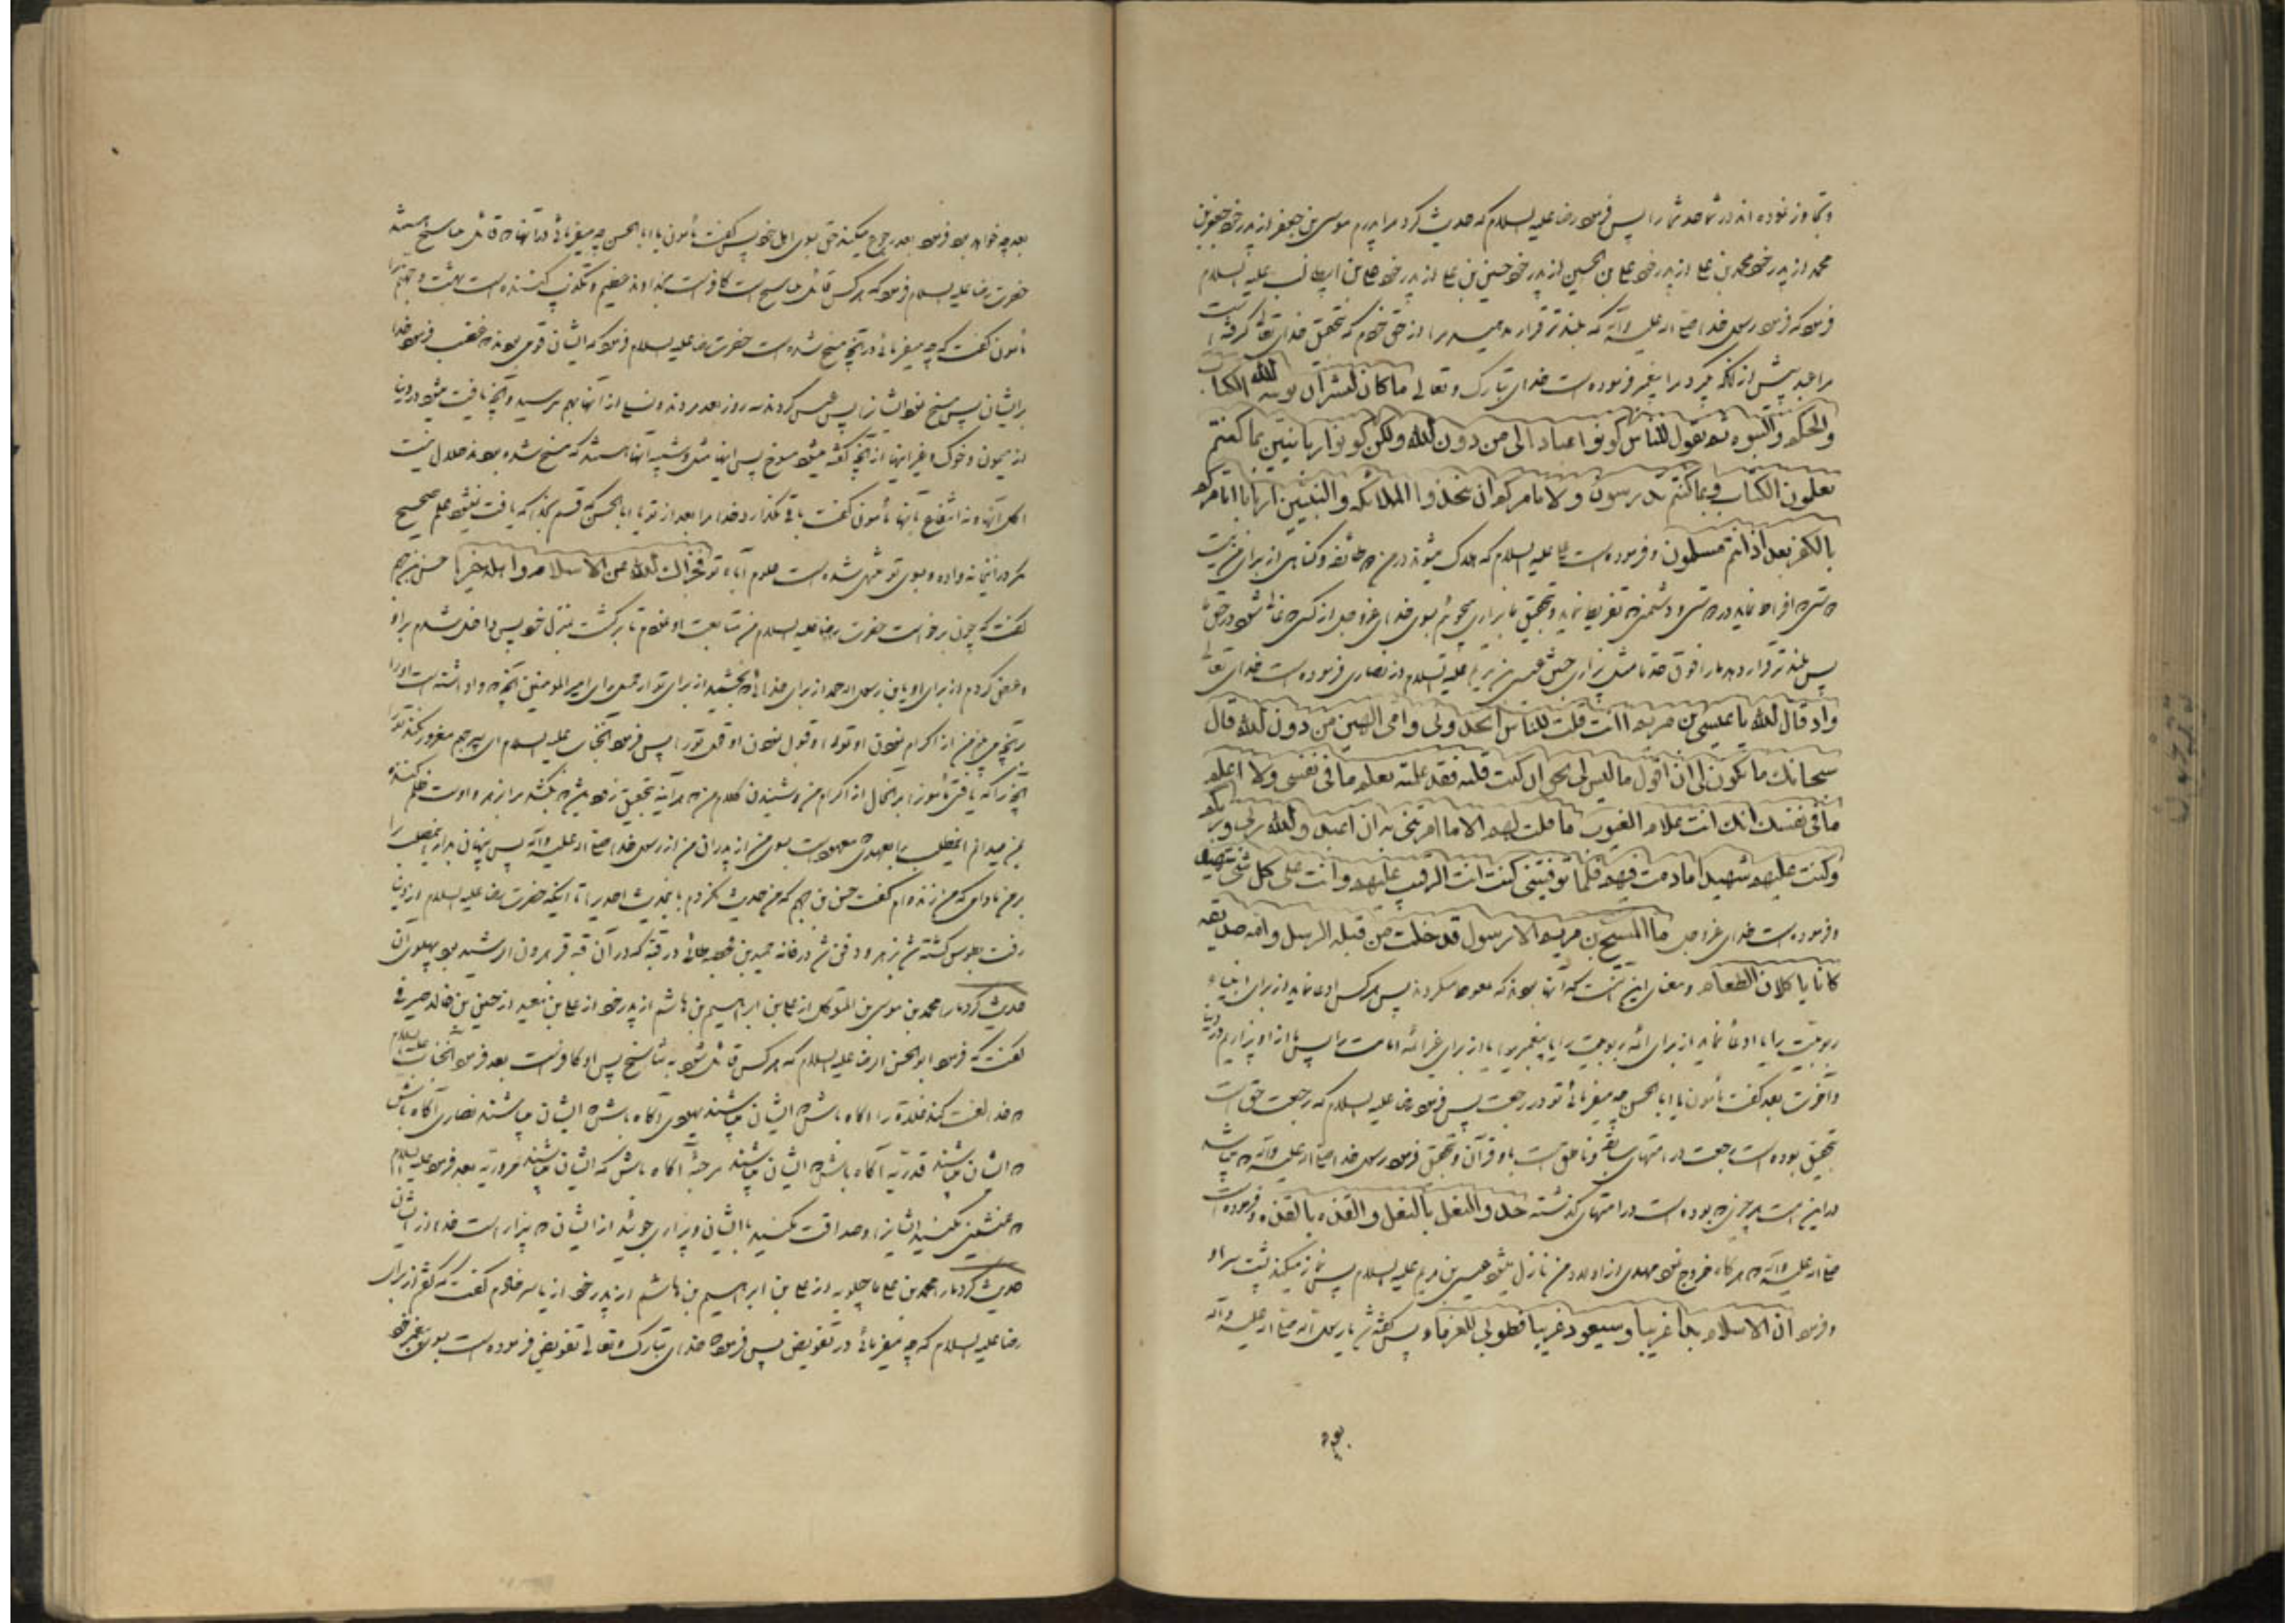 و تجاوز نموده اند در شما حد شما را پس فرمود رضا علیه السلام که حدیث کرد مرا پدرم موسی بن جعفر از پدر خود جعفر بن
محمد از پدر خود محمد بن علی از پدر خود علی بن الحسین از پدر خود حسین بن علی از پدر خود علی بن ابیطالب علیه السلام
فرمود که فرمود رسول خدا صلی الله علیه و آله که بلندتر قرار ندهید مرا از حق خودم که بتحقیق خدای تعالی گرفته است
مرا عبد پیش از آنکه بگیرد مرا پیغمبر و فرموده است خدای تبارک و تعالی ما کان لبشر ان یوتیه الله الکتاب
والحکم والنبوه ثم یقول للناس کونوا عبادا الی من دون الله ولکن کونوا ربانیین بما کنتم
تعلمون الکتاب و بما کنتم تدرسون ولا یامرکم ان تتخذوا الملائکه والنبیین اربابا ایامرکم
بالکفر بعد اذ انتم مسلمون و فرموده است علی علیه السلام که هلاک میشوند در من دو طائفه و گناهی از برای من نیست
دوستی افراط نماینده در دوستی و دشمنی تفریط نماینده و بتحقیق ما بیزاری میجوئیم بسوی خدای عزوجل از کسی که غالی شود در حق ما
پس بلندتر قرار دهد ما را فوق حد ما مثل بیزاری جستن عیسی بن مریم علیه السلام از نصاری فرموده است خدای تعالی
واذ قال الله یا عیسی بن مریم اانت قلت للناس اتخذونی وامی الهین من دون الله قال
سبحانک ما یکون لی ان اقول ما لیس لی بحق ان کنت قلته فقد علمته تعلم ما فی نفسی ولا اعلم
ما فی نفسک انک انت علام الغیوب ما قلت لهم الا ما امرتنی به ان اعبدوا الله ربی وربکم
وکنت علیهم شهیدا ما دمت فیهم فلما توفیتنی کنت انت الرقیب علیهم وانت علی کل شئ شهید
و فرموده است خدای عزوجل ما المسیح بن مریم الا رسول قد خلت من قبله الرسل وامه صدیقه
کانا یاکلان الطعام و معنای این اینست که آنها بودند که تغوط میکردند پس هر کس ادعا نماید از برای انبیاء
ربوبیت را یا ادعا نماید از برای ائمه ربوبیت را یا پیغمبری را یا از برای غیر ائمه امامت را پس ما از او بیزاریم در دنیا
و آخرت بعد گفت مأمون یا ابا الحسن چه میفرمائی تو در رجعت پس فرمود رضا علیه السلام که رجعت حق است
بتحقیق بوده است رجعت در امتهای سابقه و ناطق است باو قرآن و بتحقیق فرمود رسول خدا صلی الله علیه و آله که میباشد
در این امت هر چیزی که بوده است در امتهای گذشته حذو النعل بالنعل والقذه بالقذه و فرموده است
صلی الله علیه و آله که هرگاه خروج نمود مهدی از اولاد من نازل میشود عیسی بن مریم علیه السلام پس نماز میکند پشت سر او
و فرمود ان الاسلام بدا غریبا وسیعود غریبا فطوبی للغرباء پس گفته شد یا رسول الله صلی الله علیه و آله
بعد چه
بعد چه خواهد بود فرمود بعد رجوع میکند حق بسوی اهل خود پس گفت مأمون یا ابا الحسن چه میفرمائی در آنها که قائل بتناسخ هستند
حضرت رضا علیه السلام فرمود که هر کس قائل بتناسخ است کافر است بخداوند عظیم و تکذیب کننده است بهشت و جهنم را
مأمون گفت که چه میفرمائی در آنچه مسخ شده است حضرت رضا علیه السلام فرمود که ایشان قومی بودند که غضب فرمود خدا
بر ایشان پس مسخ نمود ایشانرا پس عیش کردند سه روز بعد مردند و نسلی از آنها بهم نرسید و آنچه یافت میشود در دنیا
از میمون و خوک و غیر اینها از آنچه گفته میشود مسوخ پس اینها مثل و شبیه آنها هستند که مسخ شده بودند حلال نیست
اکل آنها و نه انتفاع بآنها مأمون گفت باقی نگذارد خدا مرا بعد از تو یا ابا الحسن که قسم بخدا که یافت نمیشود علم صحیح
مگر در این خانه واده و بسوی تو منتهی شده است علوم آباء تو فجزاک الله عن الاسلام واهله خیرا حسن بن جهم
گفت که چون برخواست حضرت رضا علیه السلام من متابعت او نمودم تا برگشت بمنزل خود پس داخل شدم بر او
و عرض کردم از برای او یابن رسول الله حمد از برای خدائی که بخشید از برای تو از جمیل رای امیر المومنین آنچه واداشته است او را
بر آنچه می بینم من از اکرام نمودن او تو را و قبول نمودن او قول تو را پس فرمود آنجناب علیه السلام ای پسر جهم مغرور نکند تو را
آنچه را که یافتی مأمون را بر آنحال از اکرام من و شنیدن کلام من که هر آینه بتحقیق زود میشود که بکشد مرا از زهر و او است ظلم کننده
من میدانم اینمطلب را بعهدی معهود است بسوی من از پدران من از رسول خدا صلی الله علیه و آله پس پنهان بدار اینمطلب را
بر من مادامی که من زنده ام گفت حسن بن جهم که من حدیث نکردم باینحدیث احدی را تا اینکه حضرت رضا علیه السلام از دنیا
رفت بطوس کشته شد بزهر و دفن شد در خانه حمید بن قحطبه طائی در قبه که در آن قبه قبر هرون الرشید بود پهلوی آن
حدیث کرد ما را محمد بن موسی بن المتوکل از علی بن ابراهیم بن هاشم از پدر خود از علی بن معبد از حسین بن خالد صیرفی
گفت که فرمود ابو الحسن الرضا علیه السلام که هر کس قائل شود به تناسخ پس او کافر است بعد فرمود آنجناب علیه السلام
که خدا لعنت کند غلاة را آگاه باش که ایشان میباشند یهودی آگاه باش که ایشان میباشند نصاری آگاه باش
که ایشان میباشند قدریه آگاه باش که ایشان میباشند مرجئه آگاه باش که ایشان میباشند حروریه بعد فرمود علیه السلام
که همنشینی نکنید ایشانرا و صداقت نکنید با ایشان و بیزاری جوئید از ایشان که بیزار است خدا از ایشان
حدیث کرد ما را محمد بن علی ماجیلویه از علی بن ابراهیم بن هاشم از پدر خود از یاسر خادم گفت که گفتم از برای
رضا علیه السلام که چه میفرمائی در تفویض پس فرمود که خدای تبارک و تعالی تفویض فرموده است بسوی پیغمبر خود